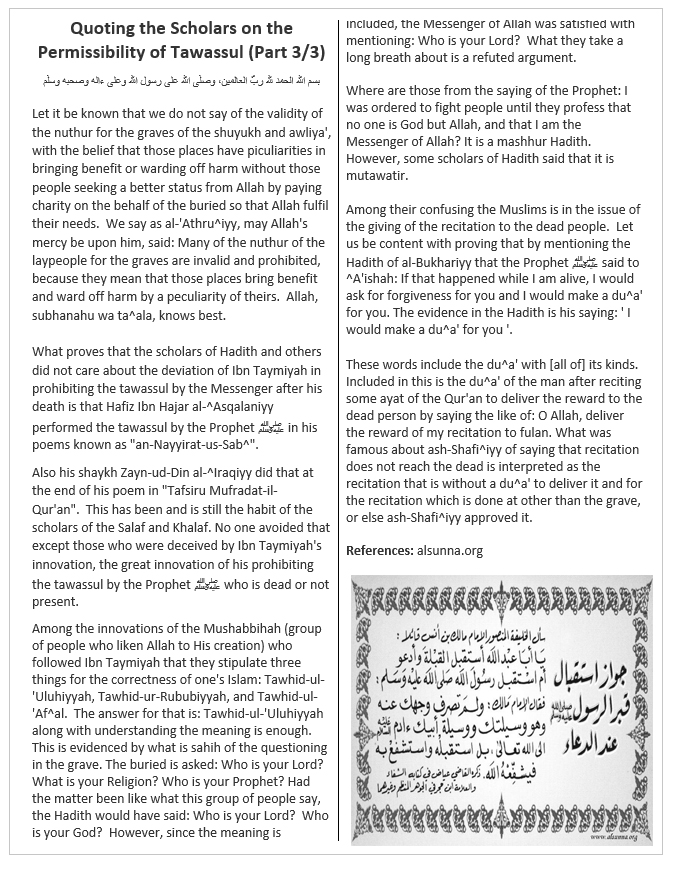 Quoting the Scholars on the
Permissibility of Tawassul (Part 3/3)
بسم الله الحمد لله ربّ العالمين، وصلّى الله على رسول الله وعلى ءاله وصحبه وسلّم
Let it be known that we do not say of the validity of
the nuthur for the graves of the shuyukh and awliya',
with the belief that those places have piculiarities in
bringing benefit or warding off harm without those
people seeking a better status from Allah by paying
charity on the behalf of the buried so that Allah fulfil
their needs.  We say as al-'Athru^iyy, may Allah's
mercy be upon him, said: Many of the nuthur of the
laypeople for the graves are invalid and prohibited,
because they mean that those places bring benefit
and ward off harm by a peculiarity of theirs.  Allah,
subhanahu wa ta^ala, knows best.
What proves that the scholars of Hadith and others
did not care about the deviation of Ibn Taymiyah in
prohibiting the tawassul by the Messenger after his
death is that Hafiz Ibn Hajar al-^Asqalaniyy
performed the tawassul by the Prophet ﷺ in his
poems known as "an-Nayyirat-us-Sab^".
Also his shaykh Zayn-ud-Din al-^Iraqiyy did that at
the end of his poem in "Tafsiru Mufradat-il-
Qur'an".  This has been and is still the habit of the
scholars of the Salaf and Khalaf. No one avoided that
except those who were deceived by Ibn Taymiyah's
innovation, the great innovation of his prohibiting
the tawassul by the Prophet ﷺ who is dead or not
present.
Among the innovations of the Mushabbihah (group
of people who liken Allah to His creation) who
followed Ibn Taymiyah that they stipulate three
things for the correctness of one's Islam: Tawhid-ul-
'Uluhiyyah, Tawhid-ur-Rububiyyah, and Tawhid-ul-
'Af^al.  The answer for that is: Tawhid-ul-'Uluhiyyah
along with understanding the meaning is enough.
This is evidenced by what is sahih of the questioning
in the grave. The buried is asked: Who is your Lord?
What is your Religion? Who is your Prophet? Had
the matter been like what this group of people say,
the Hadith would have said: Who is your Lord?  Who
is your God?  However, since the meaning is
included, the Messenger of Allah was satisfied with
mentioning: Who is your Lord?  What they take a
long breath about is a refuted argument.
Where are those from the saying of the Prophet: I
was ordered to fight people until they profess that
no one is God but Allah, and that I am the
Messenger of Allah? It is a mashhur Hadith.
However, some scholars of Hadith said that it is
mutawatir.
Among their confusing the Muslims is in the issue of
the giving of the recitation to the dead people.  Let
us be content with proving that by mentioning the
Hadith of al-Bukhariyy that the Prophet ﷺ said to
^A'ishah: If that happened while I am alive, I would
ask for forgiveness for you and I would make a du^a'
for you. The evidence in the Hadith is his saying: ' I
would make a du^a' for you '.
These words include the du^a' with [all of] its kinds.
Included in this is the du^a' of the man after reciting
some ayat of the Qur'an to deliver the reward to the
dead person by saying the like of: O Allah, deliver
the reward of my recitation to fulan. What was
famous about ash-Shafi^iyy of saying that recitation
does not reach the dead is interpreted as the
recitation that is without a du^a' to deliver it and for
the recitation which is done at other than the grave,
or else ash-Shafi^iyy approved it.
References: alsunna.org
جواز استقبال
قبر الرسول ﷺ
عند الدعاء
سأل الخليفة المنصور الإمام مالك بن أنس قائلا :
يا أبا عبد الله أستقبل القبلة وأدعو
أم استقبل رسول الله صلى الله عليه وسلم :
فقال الإمام مالك : ولم تصرف وجهك عنه
وهو وسيلتك ووسيلة أبيك ءادم
الى الله تعالى، بل استقبله واستشفع به
فيشفّعه الله. ذكره القاضي عياض في كتابه الشفاء
والعلامة ابن حجر في الجوهر المنظم وغيرهما
www.alsunna.org